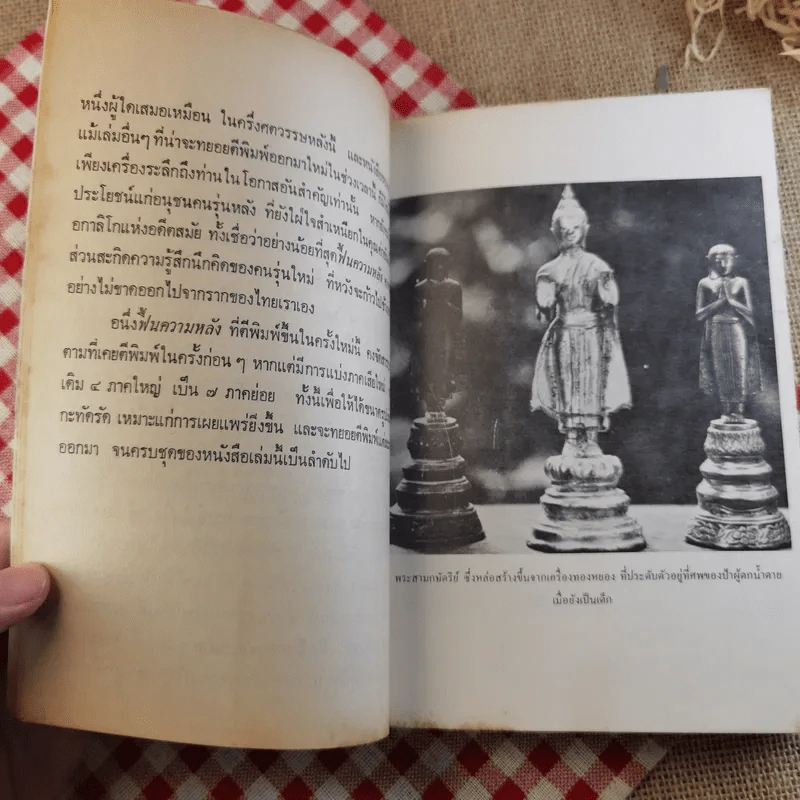 หนึ่งผู้ใดเสมอเหมือน ในครึ่งศตวรรษหลังนี้ และหนังสือ
แม้เล่มอื่นๆ ที่น่าจะทยอยตีพิมพ์ออกมาใหม่ในช่วงเวลานี้
เพียงเครื่องระลึกถึงท่านในโอกาสอันสำคัญเท่านั้น
ประโยชน์แก่อนุชนคนรุ่นหลัง ที่ยังใฝ่ใจสำเหนียกในคุณค่า
อกาลิโกแห่งอดีตสมัย ทั้งเชื่อว่าอย่างน้อยที่สุดฟื้นความหลัง
ส่วนสะกิดความรู้สึกนึกคิดของคนรุ่นใหม่ ที่หวังจะก้าวไป
อย่างไม่ขาดออกไปจากรากของไทยเราเอง
อนึ่งฟื้นความหลัง ที่ตีพิมพ์ขึ้นในครั้งใหม่นี้
ตามที่เคยตีพิมพ์ในครั้งก่อน ๆ หากแต่มีการแบ่งภาคเสียใหม่
เดิม ๔ ภาคใหญ่ เป็น ๗ ภาคย่อย ทั้งนี้เพื่อให้ได้ขนาด
กะทัดรัด เหมาะแก่การเผยแพร่ยิ่งขึ้น และจะทยอยตีพิมพ์
ออกมา จนครบชุดของหนังสือเล่มนี้เป็นลำดับไป
พระสามกษัตริย์ ซึ่งหล่อสร้างขึ้นจากเครื่องทองหยอง ที่ประดับตัวอยู่ที่ศพของป้าผู้ตกน้ำตาย
เมื่อยังเป็นเด็ก